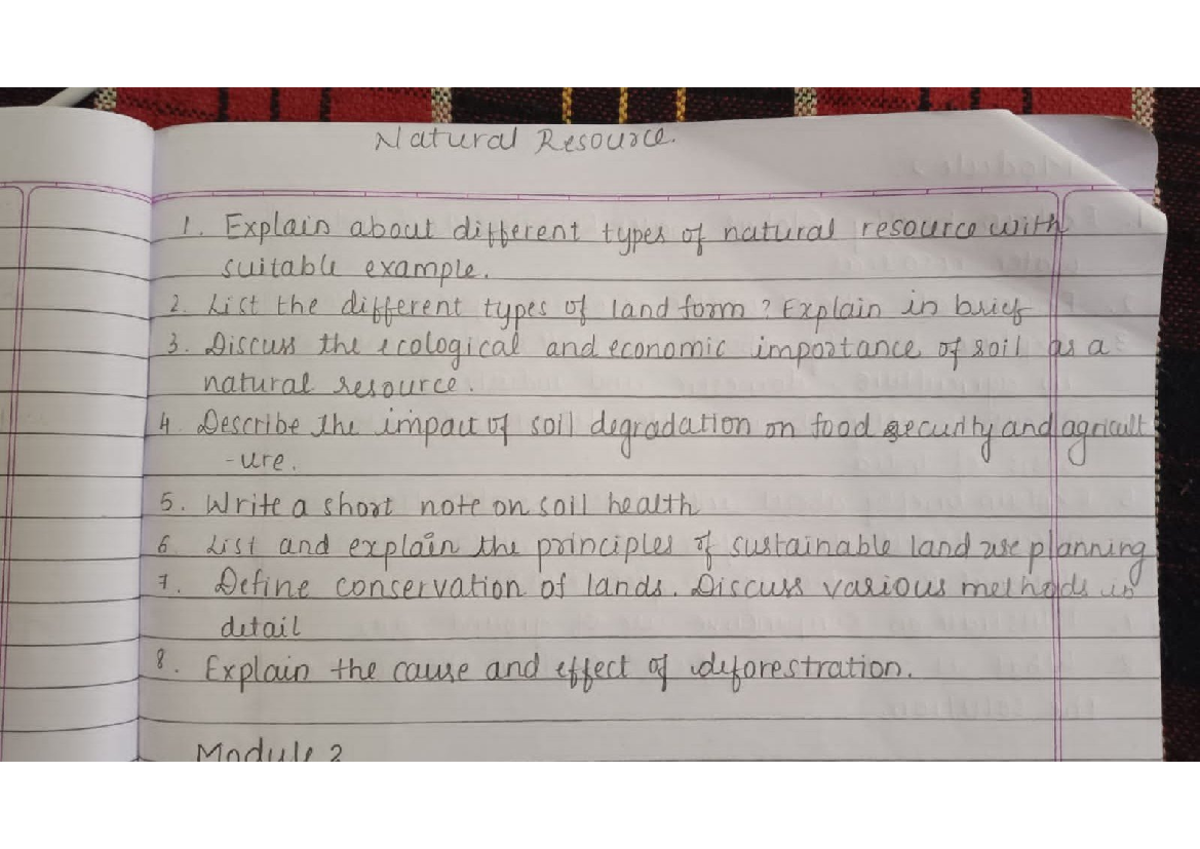 Natural Resource.
1. Explain about different types of natural resource with
suitable example.
2. List the different types of land form ? Explain in brief
3. Discuss the ecological and economic importance of soil as a
natural resource.
4. Describe the impact of soil degradation on food security and agricult
-ure.
5. Write a short note on soil health
6. List and explain the principles of sustainable land use planning
7. Define conservation of lands. Discuss various methods in
detail
8. Explain the cause and effect of deforestration.
Module 2